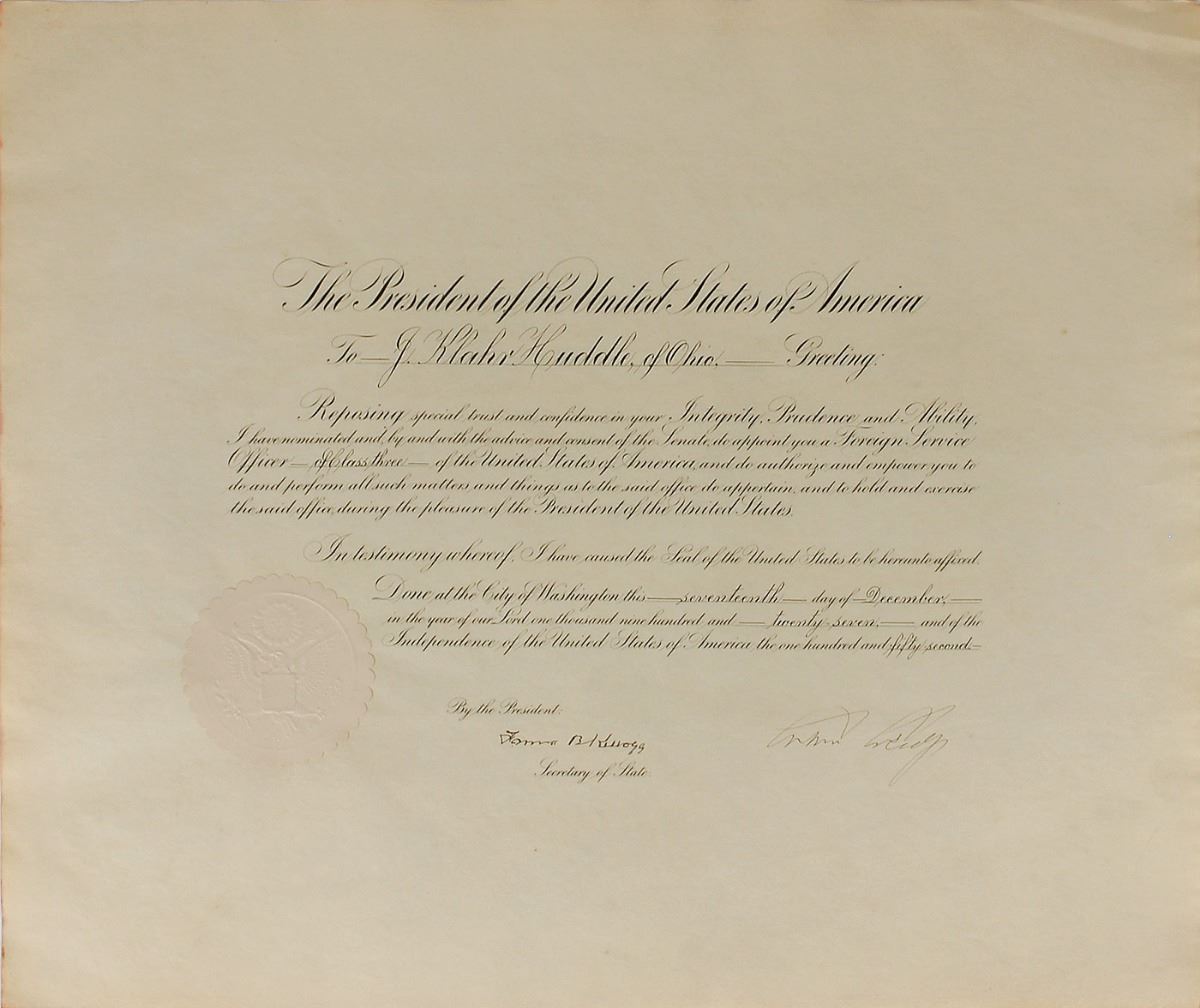 The President of the United States of America
To — J. Klahr Huddle, of Ohio, — Greeting:
Reposing special trust and confidence in your Integrity, Prudence and Ability,
I have nominated and, by and with the advice and consent of the Senate, do appoint you a Foreign Service
Officer — of Class three — of the United States of America, and do authorize and empower you to
do and perform all such matters and things as to the said office do appertain, and to hold and exercise
the said office, during the pleasure of the President of the United States.
In testimony whereof, I have caused the Seal of the United States to be hereunto affixed.
Done at the City of Washington this — seventeenth — day of — December, —
in the year of our Lord one thousand nine hundred and — twenty-seven, — and of the
Independence of the United States of America the one hundred and fifty-second.—
By the President:
Frank B Kellogg
Secretary of State.